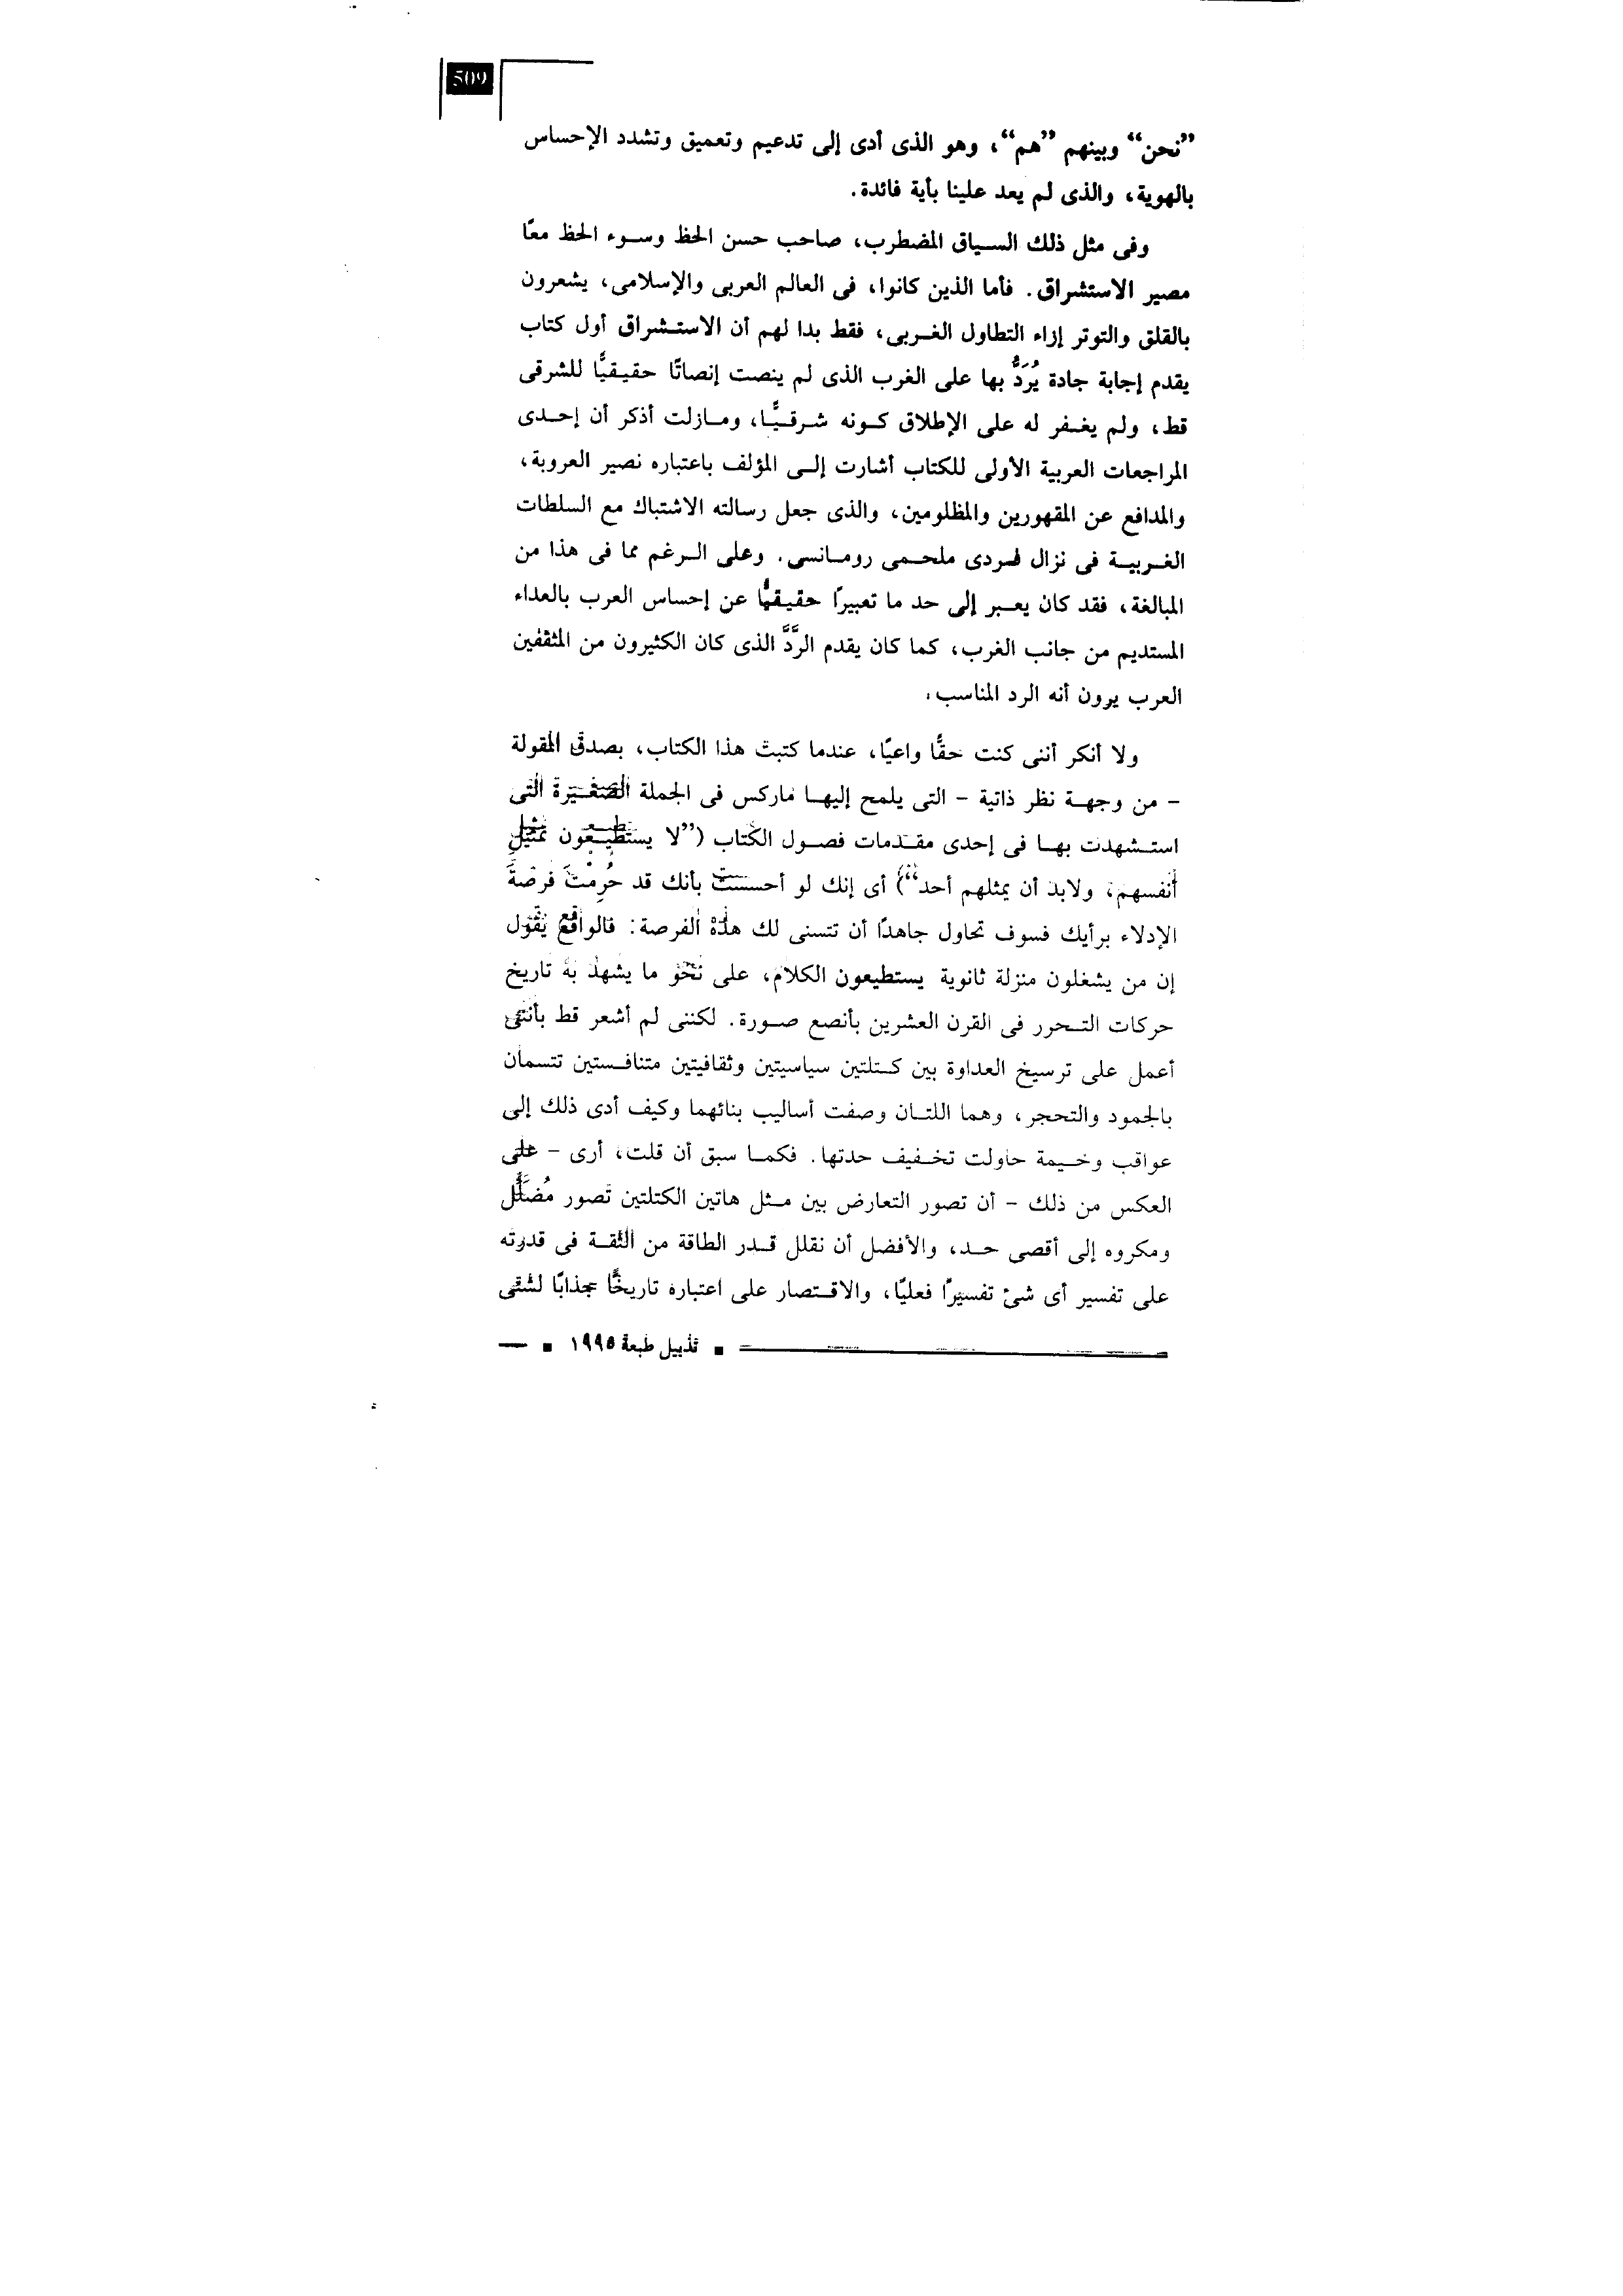 509
”نحن“ وبينهم ”هم“، وهو الذى أدى إلى تدعيم وتعميق وتشدد الإحساس
بالهوية، والذى لم يعد علينا بأية فائدة.
وفى مثل ذلك السياق المضطرب، صاحب حسن الحظ وسوء الحظ معًا
مصير الاستشراق. فأما الذين كانوا، فى العالم العربى والإسلامى، يشعرون
بالقلق والتوتر إزاء التطاول الغربى، فقط بدا لهم أن الاستشراق أول كتاب
يقدم إجابة جادة يُرَدُّ بها على الغرب الذى لم ينصت إنصاتًا حقيقيًّا للشرقى
قط، ولم يغفر له على الإطلاق كونه شرقيًّا، ومازلت أذكر أن إحدى
المراجعات العربية الأولى للكتاب أشارت إلى المؤلف باعتباره نصير العروبة،
والمدافع عن المقهورين والمظلومين، والذى جعل رسالته الاشتباك مع السلطات
الغربية فى نزال فردى ملحمى رومانسى. وعلى الرغم مما فى هذا من
المبالغة، فقد كان يعبر إلى حد ما تعبيرًا حقيقيًّا عن إحساس العرب بالعداء
المستديم من جانب الغرب، كما كان يقدم الرَّدَّ الذى كان الكثيرون من المثقفين
العرب يرون أنه الرد المناسب.
ولا أنكر أننى كنت حقًّا واعيًا، عندما كتبت هذا الكتاب، بصدق المقولة
- من وجهة نظر ذاتية - التى يلمح إليها ماركس فى الجملة الصغيرة التى
استشهدت بها فى إحدى مقدمات فصول الكتاب (”لا يستطيعون تمثيل
أنفسهم، ولابد أن يمثلهم أحد“) أى إنك لو أحسست بأنك قد حُرِمْتَ فرصة
الإدلاء برأيك فسوف تحاول جاهدًا أن تتسنى لك هذه الفرصة: فالواقع يقول
إن من يشغلون منزلة ثانوية يستطيعون الكلام، على نحو ما يشهد به تاريخ
حركات التحرر فى القرن العشرين بأنصع صورة. لكننى لم أشعر قط بأننى
أعمل على ترسيخ العداوة بين كتلتين سياسيتين وثقافيتين متنافستين تتسمان
بالجمود والتحجر، وهما اللتان وصفت أساليب بنائهما وكيف أدى ذلك إلى
عواقب وخيمة حاولت تخفيف حدتها. فكما سبق أن قلت، أرى - على
العكس من ذلك - أن تصور التعارض بين مثل هاتين الكتلتين تصور مُضَلِّل
ومكروه إلى أقصى حد، والأفضل أن نقلل قدر الطاقة من الثقة فى قدرته
على تفسير أى شئ تفسيرًا فعليًا، والاقتصار على اعتباره تاريخًا جذابًا لشتى
تذييل طبعة ١٩٩٥